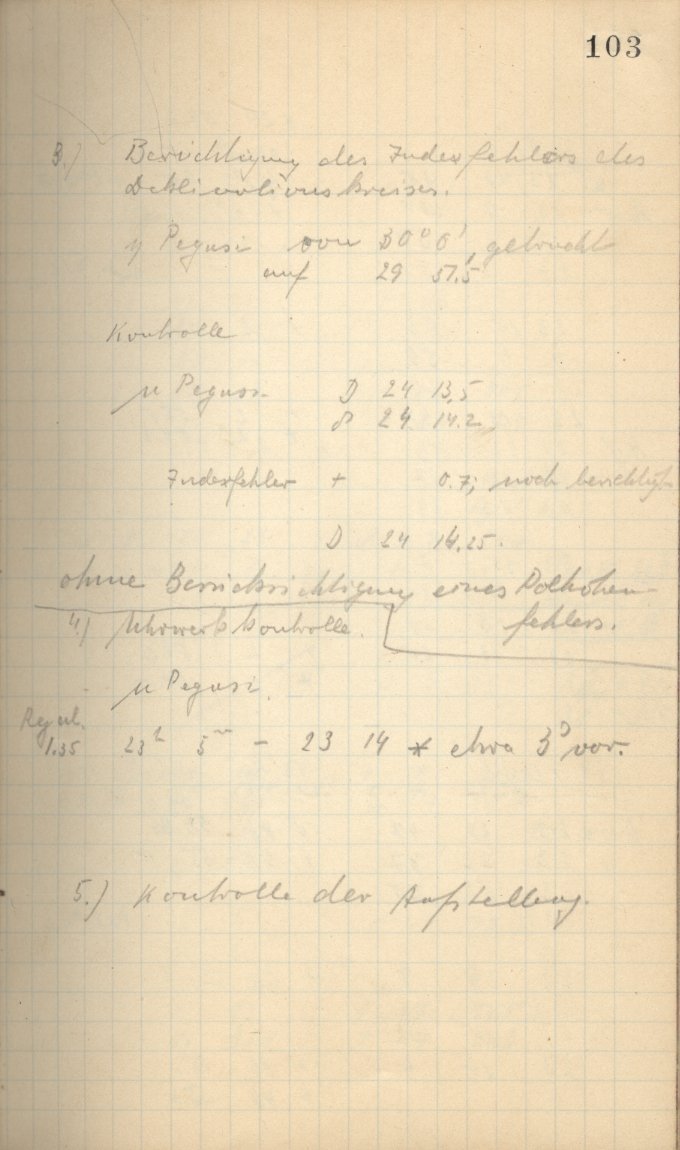 103
3.) Berichtigung des Indexfehlers des
Deklinationskreises.
η Pegasi von 30° 0' gebracht
auf 29 57,5
Kontrolle
μ Pegasi D 24 13,5
δ 24 14.2
Indexfehler + 0.7; noch berichtigt
D 24 14,25.
ohne Berücksichtigung eines Polhöhen-
fehlers.
4.) Uhrwerkkontrolle.
μ Pegasi.
Regul.
1.35 23h 5m - 23 14 * etwa 3s vor.
5.) Kontrolle der Aufstellung.